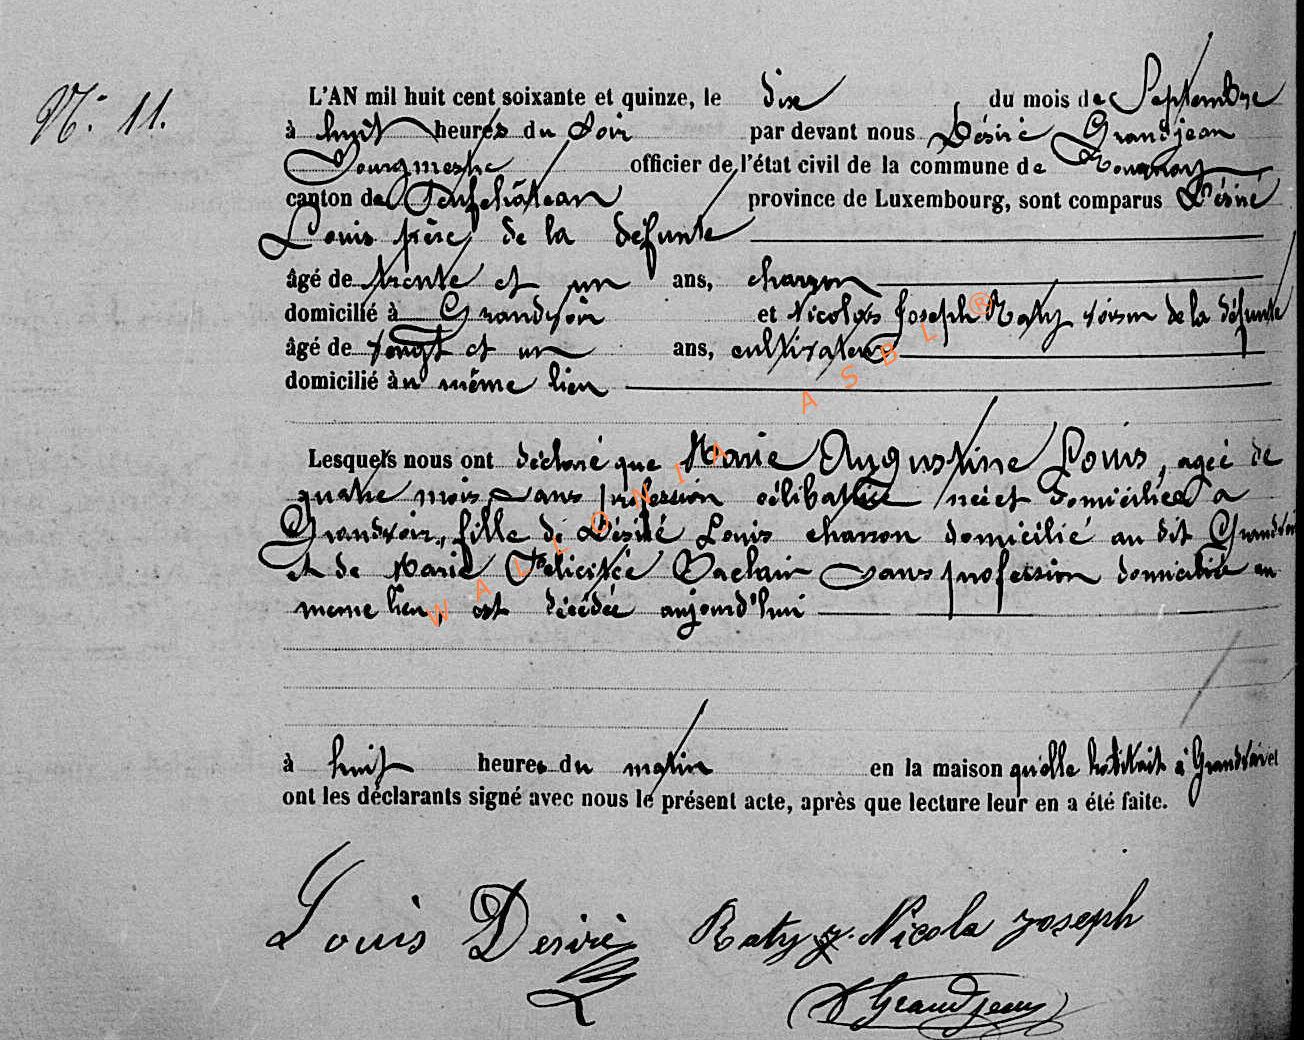 N. 11.
L'AN mil huit cent soixante et quinze, le dix du mois de Septembre
à huit heures du Soir par devant nous Désiré Grandjean
Bourgmestre officier de l'état civil de la commune de
canton de Neufchâteau province de Luxembourg, sont comparus Désiré
Louis frère de la défunte
âgé de trente et un ans, charron
domicilié à Grandvoir et Nicolas Joseph Raty voisin de la défunte
âgé de vingt et un ans, cultivateur
domicilié àu même lieu
Lesquels nous ont déclaré que Marie Augustine Louis, agée de
quatre mois sans profession célibataire née et domiciliée a
Grandvoir, fille de Désiré Louis charron domicilié au dit Grandvoir
et de Marie Félicitée sans profession domiciliée au
meme lieu, est décédée aujourd'hui
à huit heures du matin en la maison qu'elle habitait à Grandvoir et
ont les déclarants signé avec nous le présent acte, après que lecture leur en a été faite.
Louis Desiré Raty Nicola Joseph
D Grandjean
WALLONIA ASBL ®